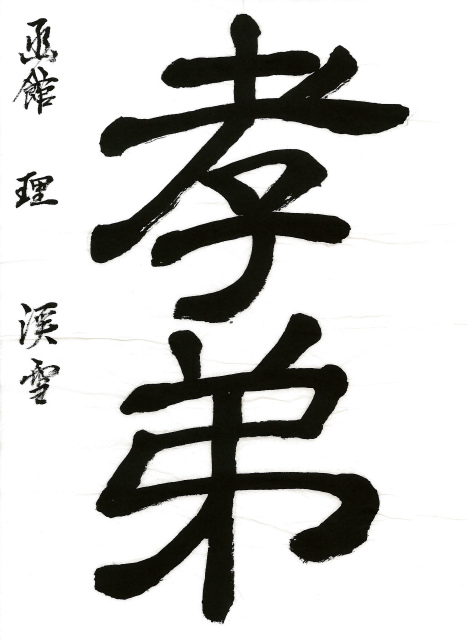 孝弟
函館 理 渓雪